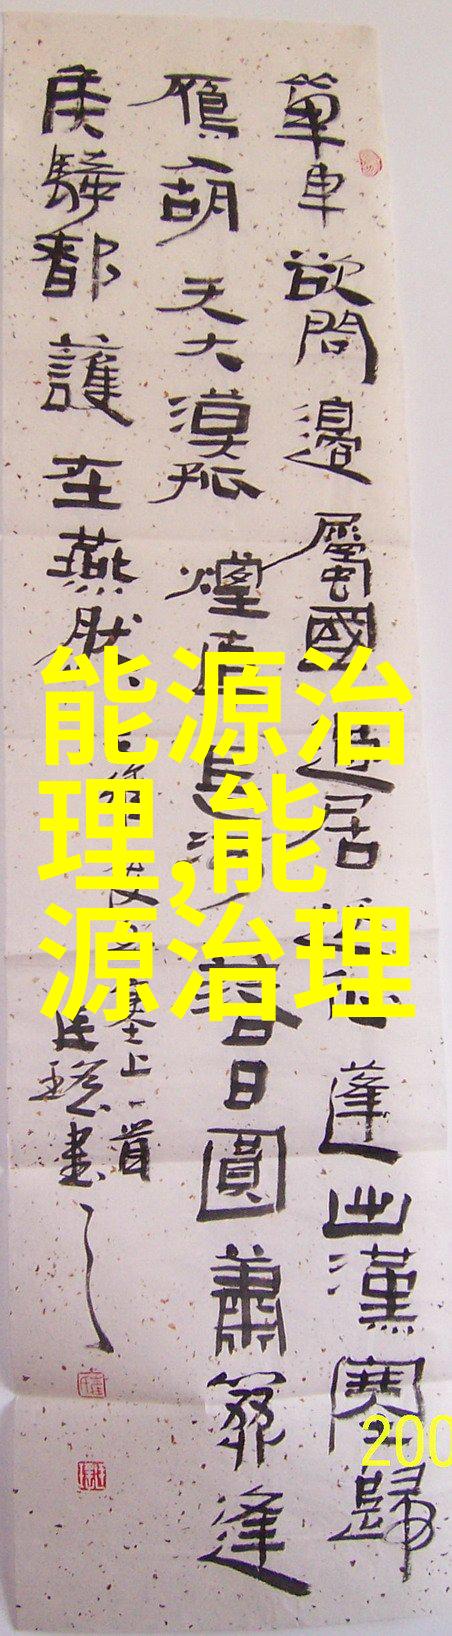 單車欲問邊屬國過居延征蓬出漢塞歸
鴈入胡天大漠孤煙直長河落日圓蕭關逢
侯騎都護在燕然
維使至塞上一首
書
能源治
理,能
源治理
200